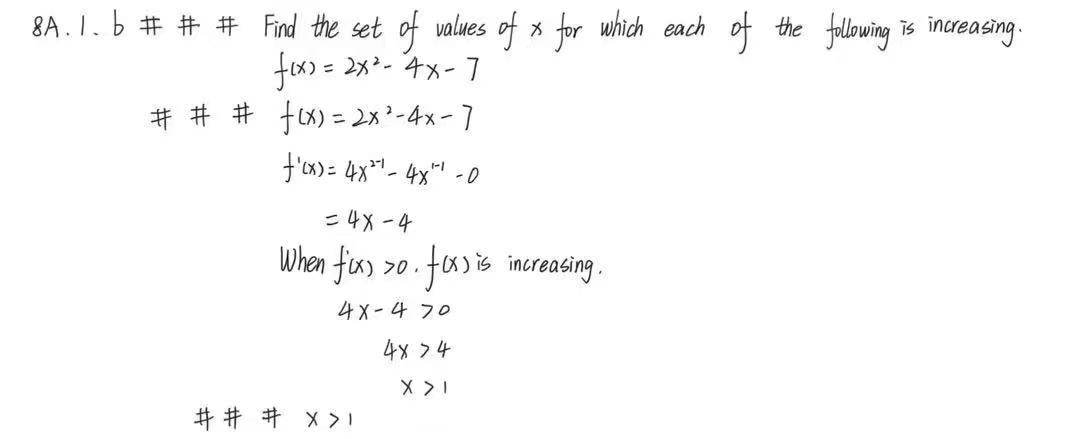 8A.1.b # # # Find the set of values of x for which each of the following is increasing.
f(x) = 2x² - 4x - 7
# # # f(x) = 2x² - 4x - 7
f'(x) = 4x²⁻¹ - 4x¹⁻¹ - 0
= 4x - 4
When f'(x) > 0. f(x) is increasing.
4x - 4 > 0
4x > 4
x > 1
# # # x > 1